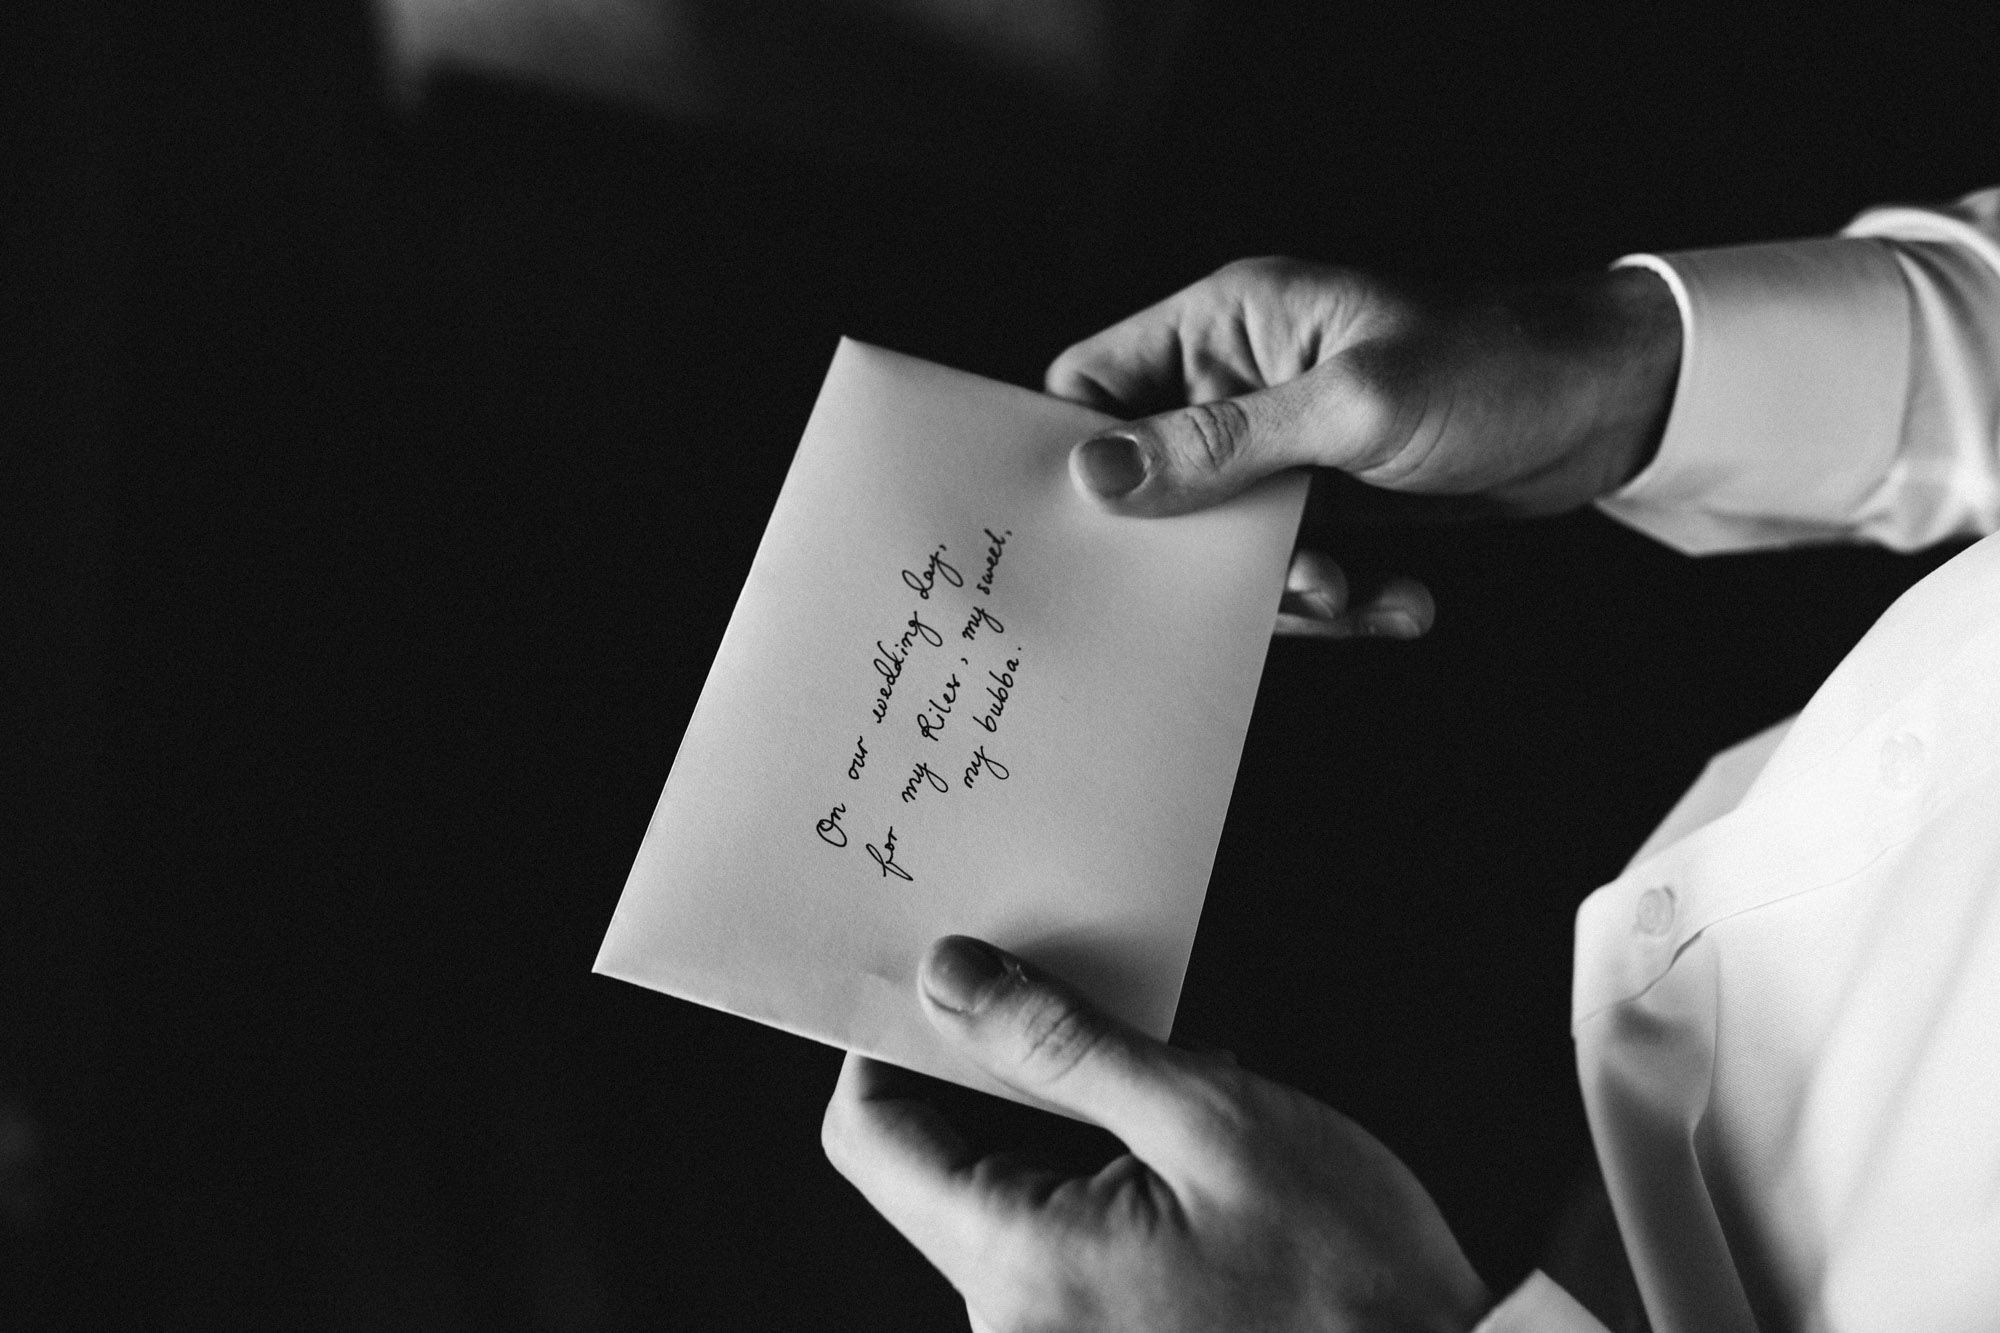 On our wedding day,
for my Riles, my sweet,
my bubba.